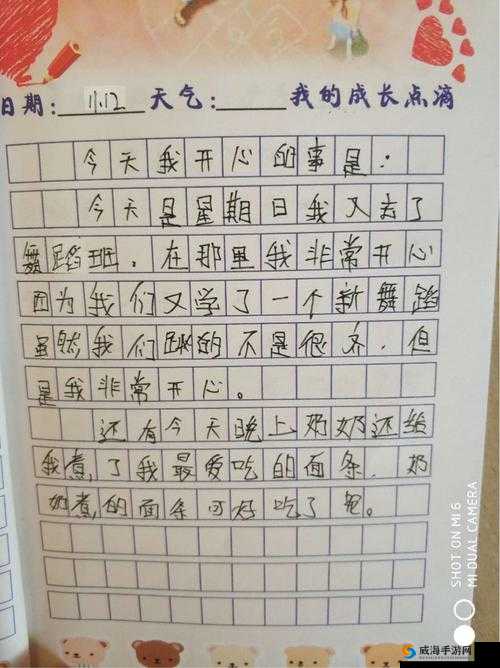 日期: 11.12 天气: 我的成长点滴
今天我开心的事是:
今天是星期日我又去了
舞蹈班。在那里我非常开心
因为我们又学了一个新舞蹈
虽然我们跳的不是很齐.但
是我非常开心。
还有今天晚上奶奶还给
我煮了我最爱吃的面条.奶
奶煮的面条可好吃了
SHOT ON MI 6
MI DUAL CAMERA
威海手游网